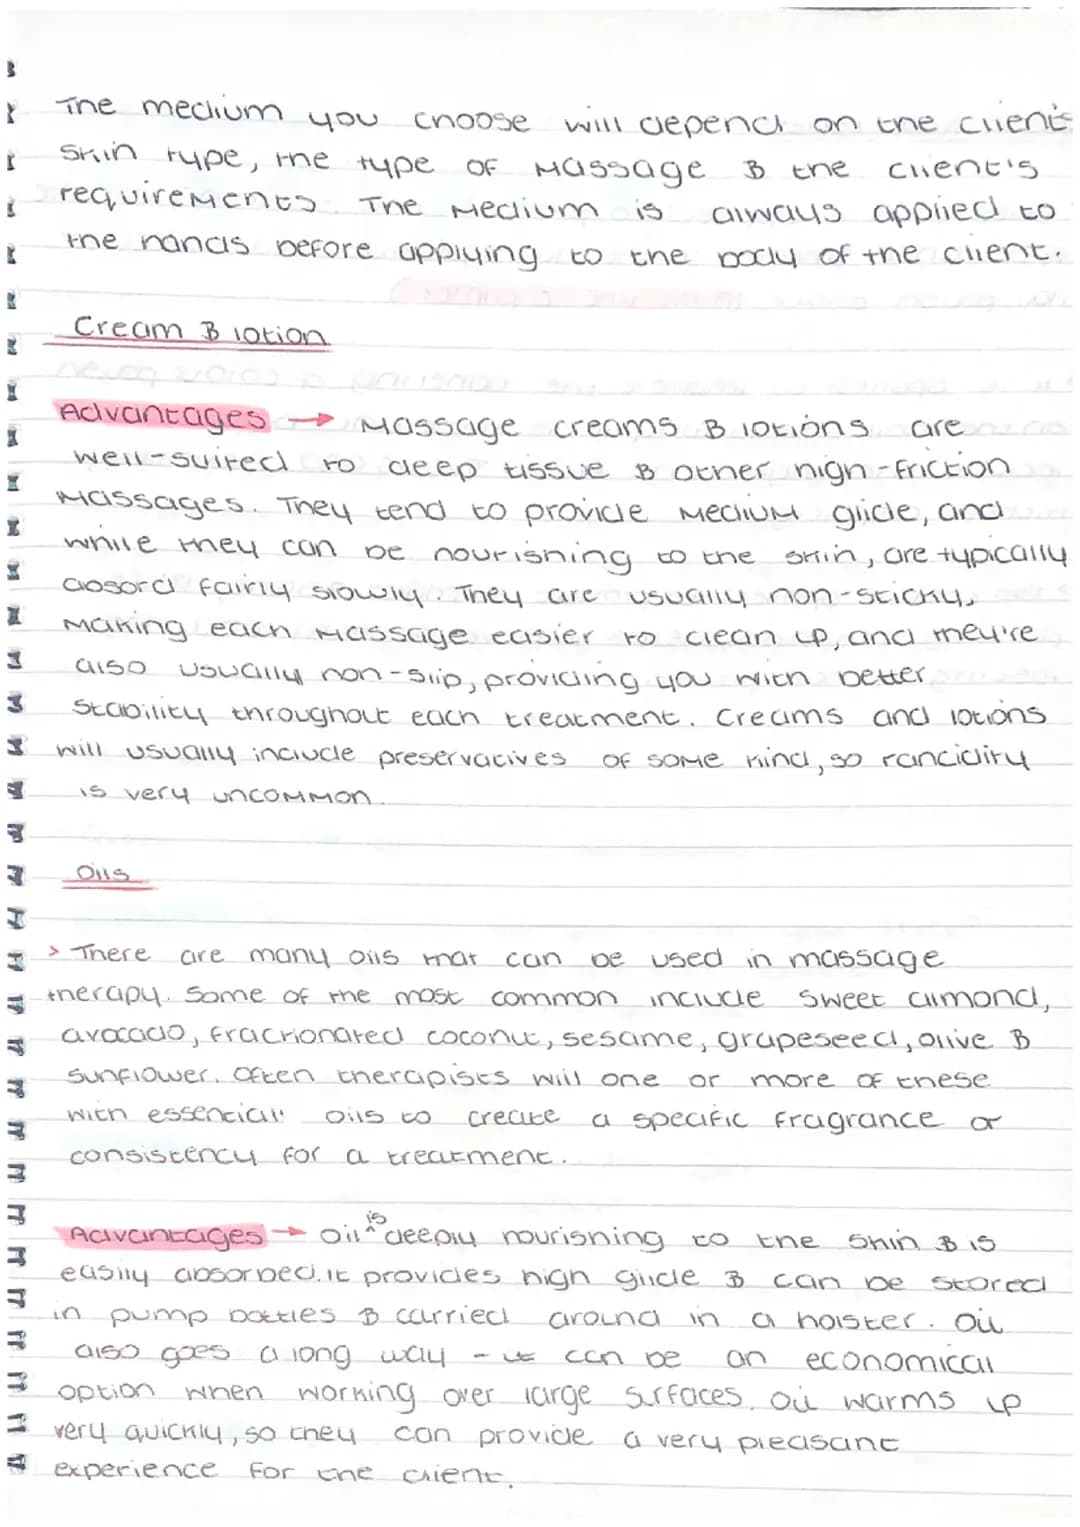 The medium you choose will depend on the client's
skin type, the type of massage & the client's
requirements. The medium is always applied to
the hands before applying to the body of the client.
Cream & lotion
Advantages → Massage creams & lotions are
well-suited to deep tissue & other high-friction
massages. They tend to provide medium glide, and
while they can be nourishing to the skin, are typically
absord fairly slowly. They are usually non-sticky,
making each massage easier to clean up, and they're
also usually non-slip, providing you with better
stability throughout each treatment. Creams and lotions
will usually include preservatives of some kind, so rancidity
is very uncommon.
Oils
> There are many oils that can be used in massage
therapy. Some of the most common include sweet almond,
avocado, fractionated coconut, sesame, grapeseed, olive &
sunflower. Often therapists will one or more of these
with essential oils to create a specific fragrance or
consistency for a treatment.
Advantages → Oil ^is deeply nourishing to the skin & is
easily absorbed. it provides high glide & can be stored
in pump bottles & carried around in a holster. Oil
also goes a long way - it can be an economical
option when working over large surfaces. Oil warms up
very quickly, so they can provide a very pleasant
experience for the client.